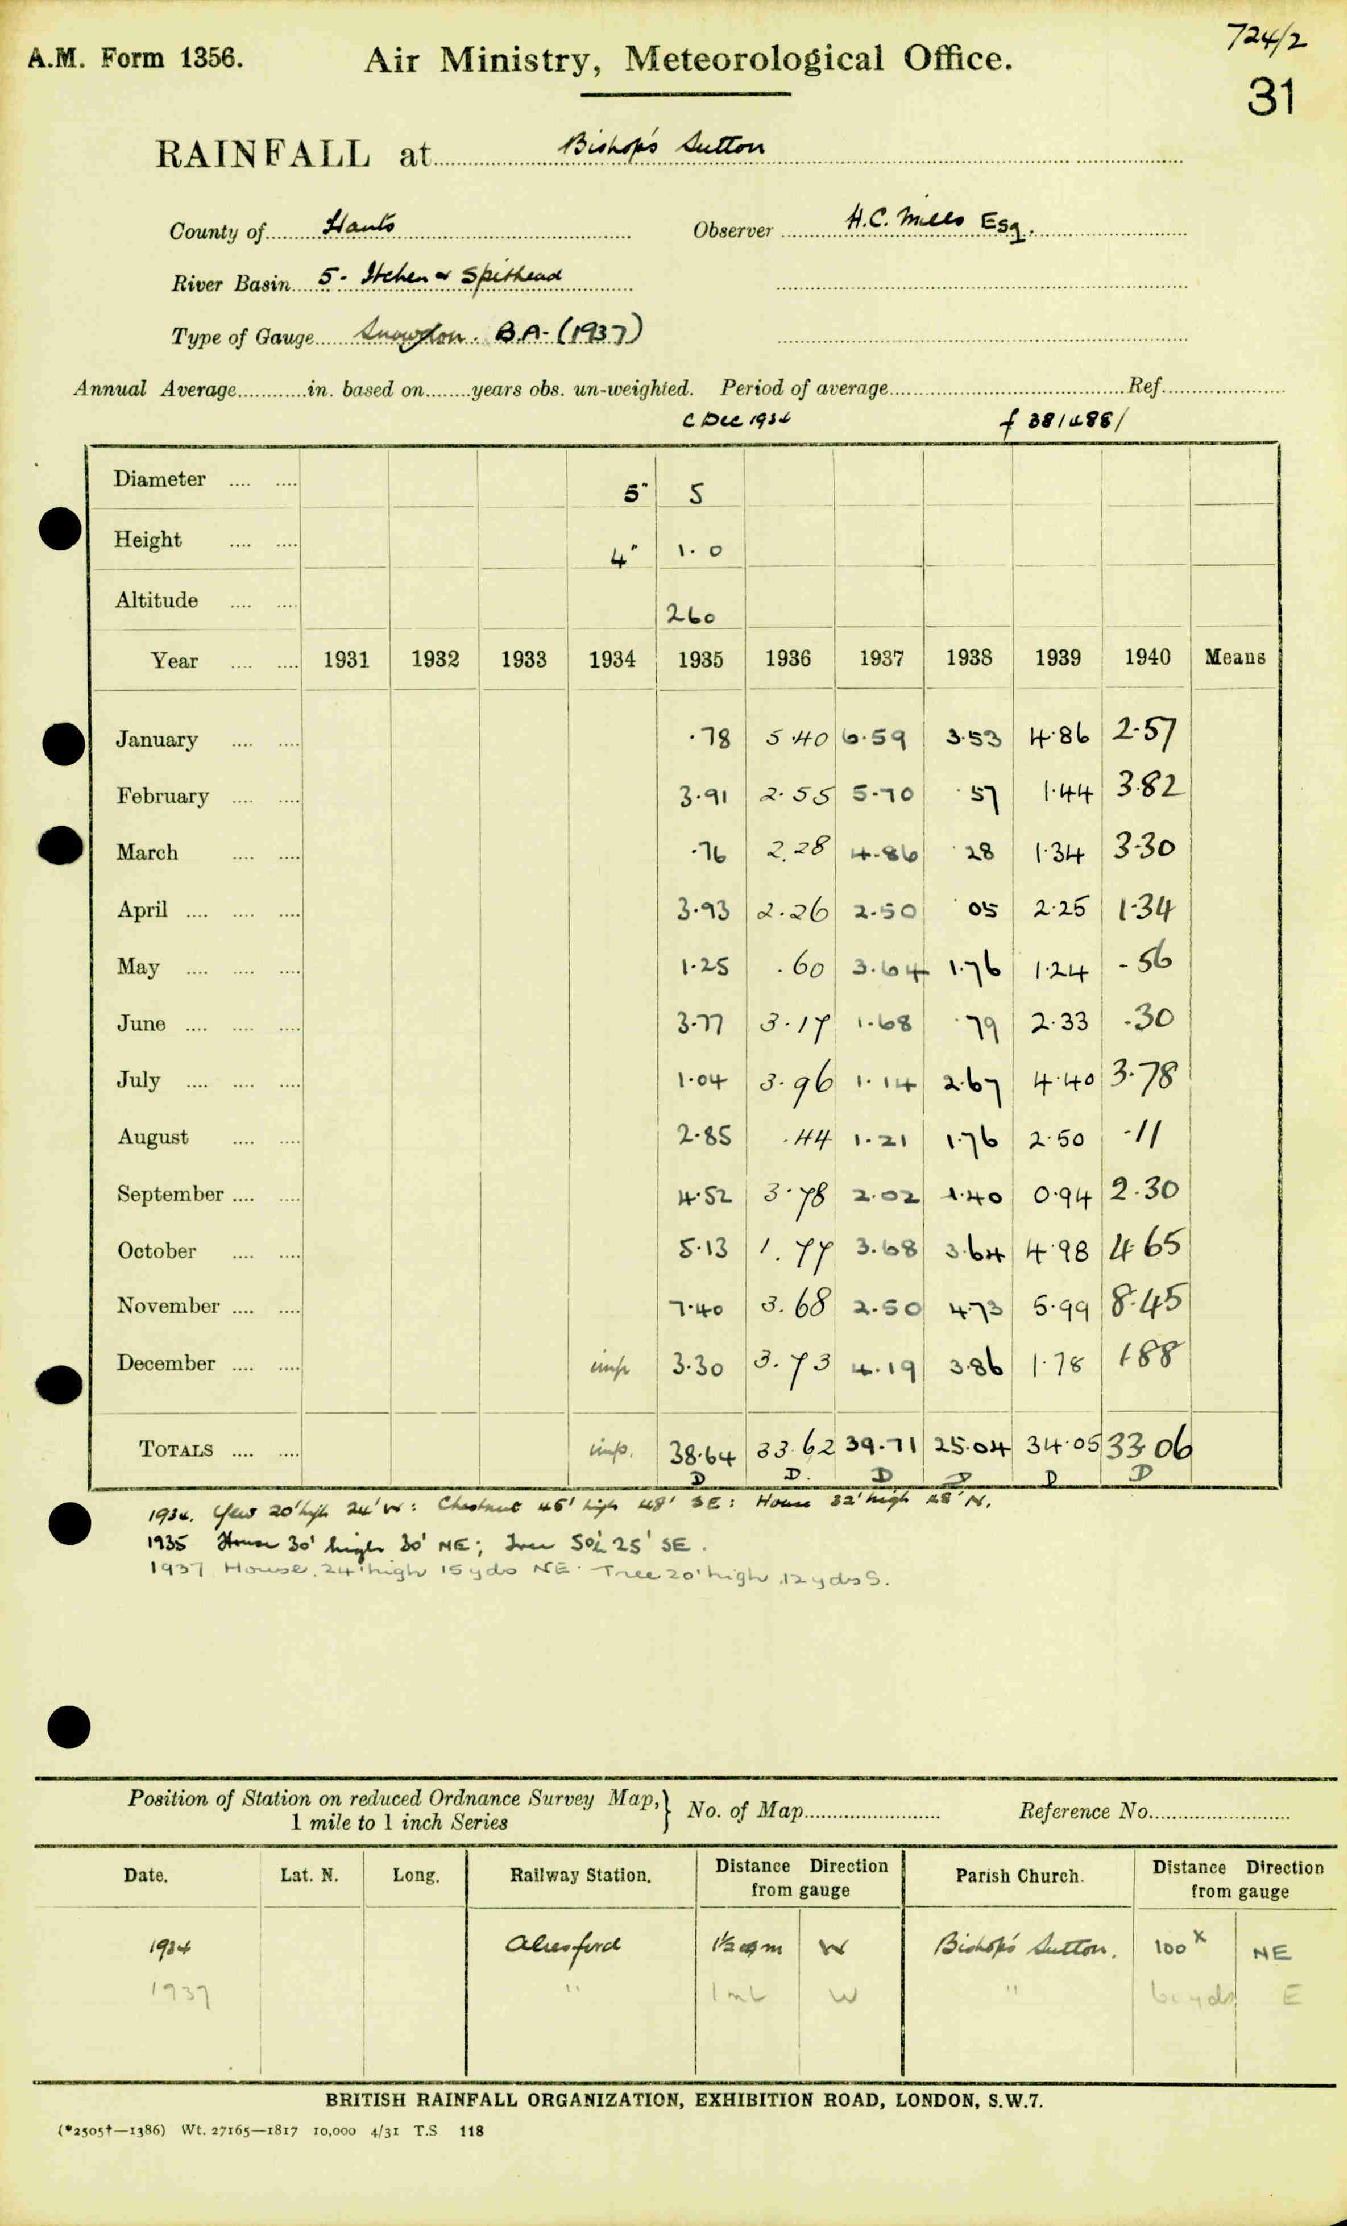 724/2
A.M. Form 1356. Air Ministry, Meteorological Office.
31
RAINFALL at Bishop's Sutton
County of Hants Observer H.C. Mills Esq.
River Basin 5 - Itchen & Spithead
Type of Gauge Snowdon. B.A. (1937)
Annual Average in. based on years obs. un-weighted. Period of average Ref.
C Dec 1934 f 381488/
Diameter 5" 5
Height 4" 1.0
Altitude 260
Year 1931 1932 1933 1934 1935 1936 1937 1938 1939 1940 Means
January ·78 5·40 6·59 3·53 4·86 2·57
February 3·91 2·55 5·70 ·57 1·44 3·82
March ·76 2.28 4·86 ·28 1·34 3·30
April 3·93 2·26 2·50 ·05 2·25 1·34
May 1·25 ·60 3·64 1·76 1·24 ·56
June 3·77 3·17 1·68 ·79 2·33 ·30
July 1·04 3·96 1·14 2·67 4·40 3·78
August 2·85 ·44 1·21 1·76 2·50 ·11
September 4·52 3·78 2·02 1·40 0·94 2·30
October 5·13 1.77 3·68 3·64 4·98 4·65
November 7·40 3.68 2·50 4·73 5·99 8·45
December imp 3·30 3.73 4·19 3·86 1·78 1·88
TOTALS imp. 38·64 33·62 39·71 25·04 34·05 33·06
D D. D D D D
1934. Yew 20' high 24' W: Chestnut 45' high 48' SE: House 32' high 28' N.
1935 House 30' high 30' NE; Tree 50' 25' SE.
1937 House, 24' high 15 yds NE. Tree 20' high, 12 yds S.
Position of Station on reduced Ordnance Survey Map, 1 mile to 1 inch Series } No. of Map Reference No.
Date. Lat. N. Long. Railway Station. Distance Direction from gauge Parish Church. Distance Direction from gauge
1934 Alresford 1½ m W Bishop's Sutton. 100 x NE
1937 " 1 ml W " 60 yds E
BRITISH RAINFALL ORGANIZATION, EXHIBITION ROAD, LONDON, S.W.7.
(*2505†—1386) Wt. 27165—1817 10,000 4/31 T.S 118